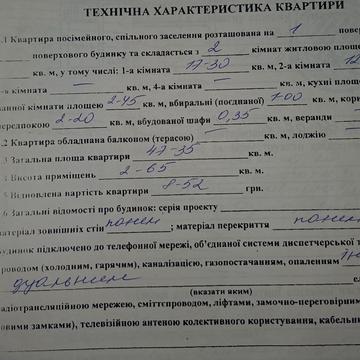 ТЕХНІЧНА ХАРАКТЕРИСТИКА КВАРТИРИ
.1 Квартира посімейного, спільного заселення розташована на 1 повер
поверхового будинку та складається з 2 кімнат житловою площе
кв. м, у тому числі: 1-а кімната 17-30 кв. м, 2-а кімната 12
-я кімната — кв. м, 4-а кімната — кв. м, кухні площе
ванної кімнати площею 2-45 кв. м, вбиральні (поєднаної) 1-00 кв. м, кори
передпокою 2-20 кв. м, вбудованої шафи 0,35 кв. м, веранди
.2 Квартира обладнана балконом (терасою) — кв. м, лоджією
.3 Загальна площа квартири 47-35 кв. м.
Висота приміщень 2-65 кв. м.
5 Відновлена вартість квартири 8-52 грн.
6 Загальні відомості про будинок: серія проекту
матеріал зовнішніх стін панел; матеріал перекриття панел
Будинок підключено до телефонної мережі, об'єднаної системи диспетчерської
проводом (холодним, гарячим), каналізацією, газопостачанням, опаленням
дуальним
(вказати яким)
адіотрансляційною мережею, сміттєпроводом, ліфтами, замочно-переговорним
овими замками), телевізійною антеною колективного користування, кабельн